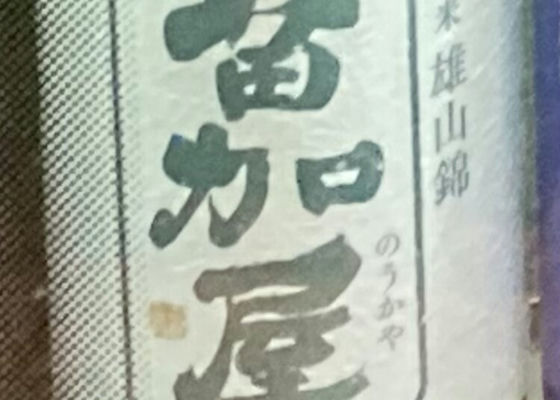 米 雄山錦
のうかや
苗加屋